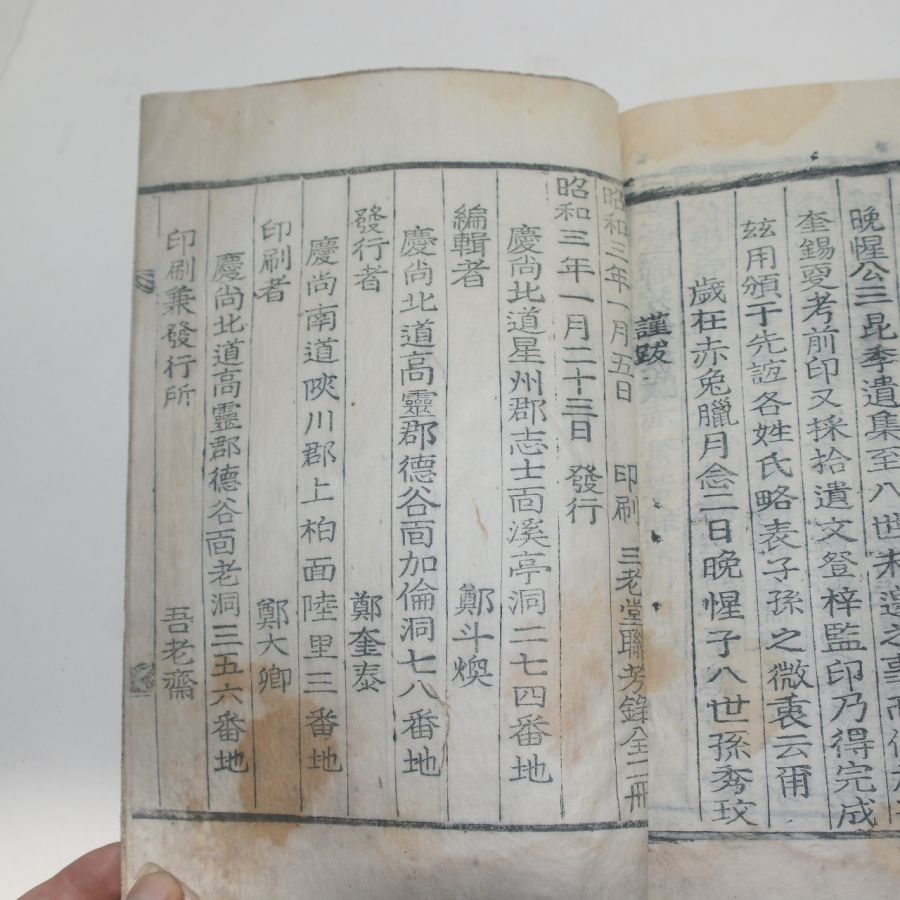 晩惺公三昆季遺集至八世未遑之事而
奎錫更考前印又採拾遺文登梓監印乃得完成
玆用頒于先誼各姓氏略表子孫之微衷云爾
歲在赤兔臘月念二日晩惺子八世孫秀玟
謹跋
昭和三年一月五日 印刷 三老堂聯芳錄全二冊
昭和三年一月二十三日 發行
慶尚北道星州郡志士面溪亭洞二七四番地
編輯者 鄭斗煥
慶尚北道高靈郡德谷面加倫洞七八番地
發行者 鄭奎泰
慶尚南道陜川郡上柏面陸里三番地
印刷者 鄭大卿
慶尚北道高靈郡德谷面老洞三五六番地
印刷兼發行所 吾老齋